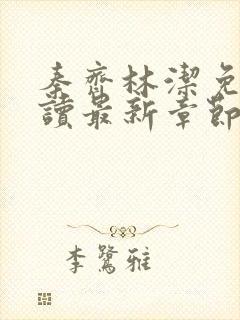 秦齊林潔免
讀最新章節
李鷺雅